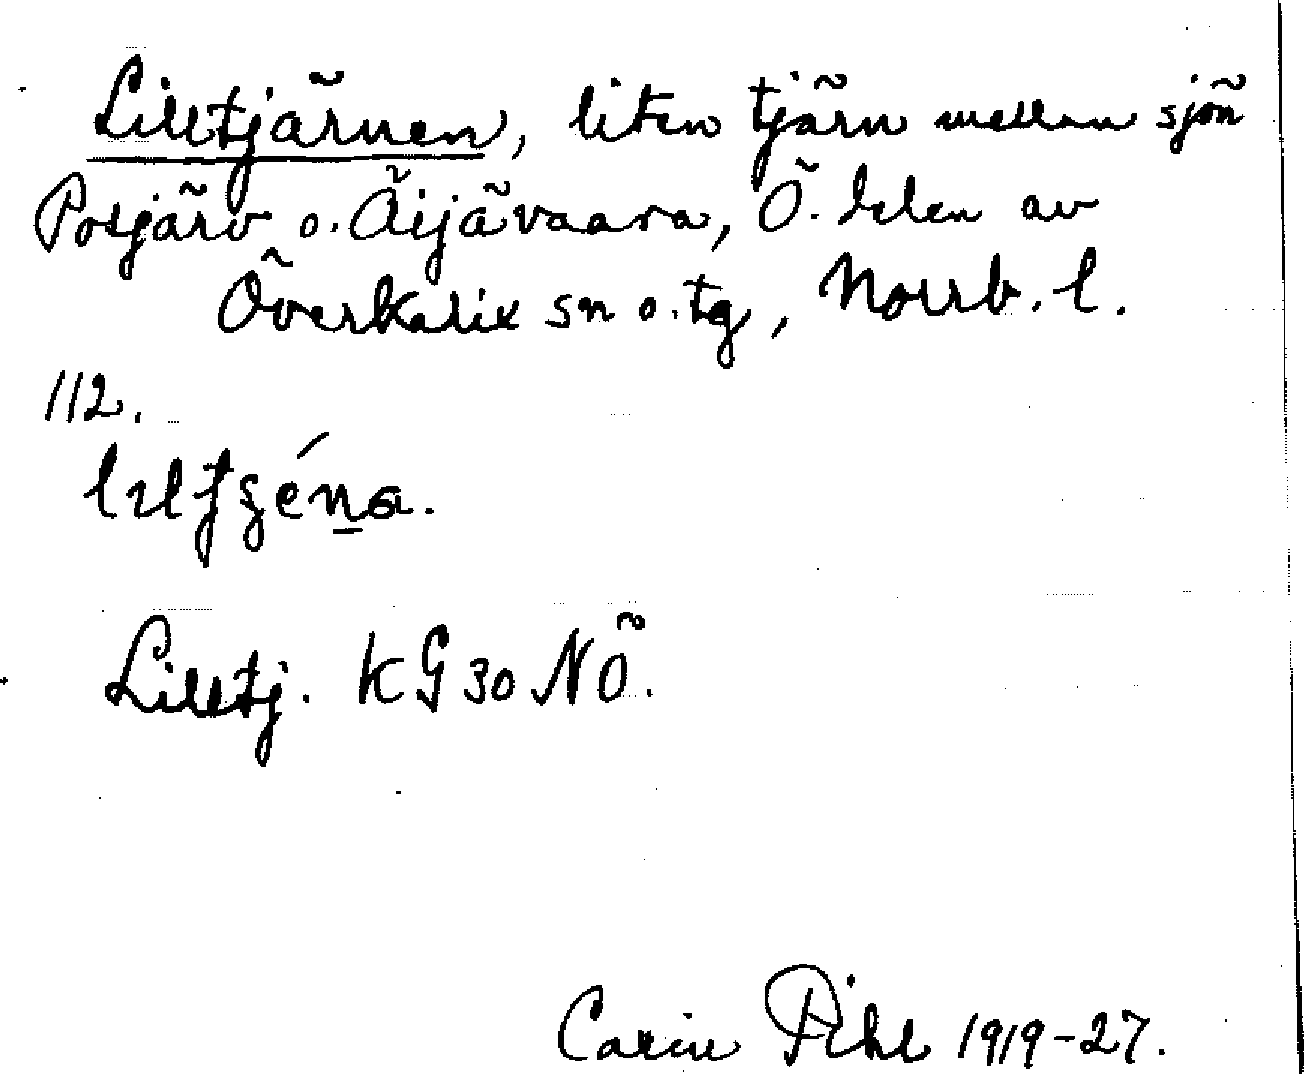 Lilltjärnen, liten tjärn mellan sjön
Potjärv o. Äijävaara, Ö. delen av
Överkalix sn o. tg, Norrb. l.
112.
Lilltj. KG30NÖ.
Carin Pihl 1919-27.